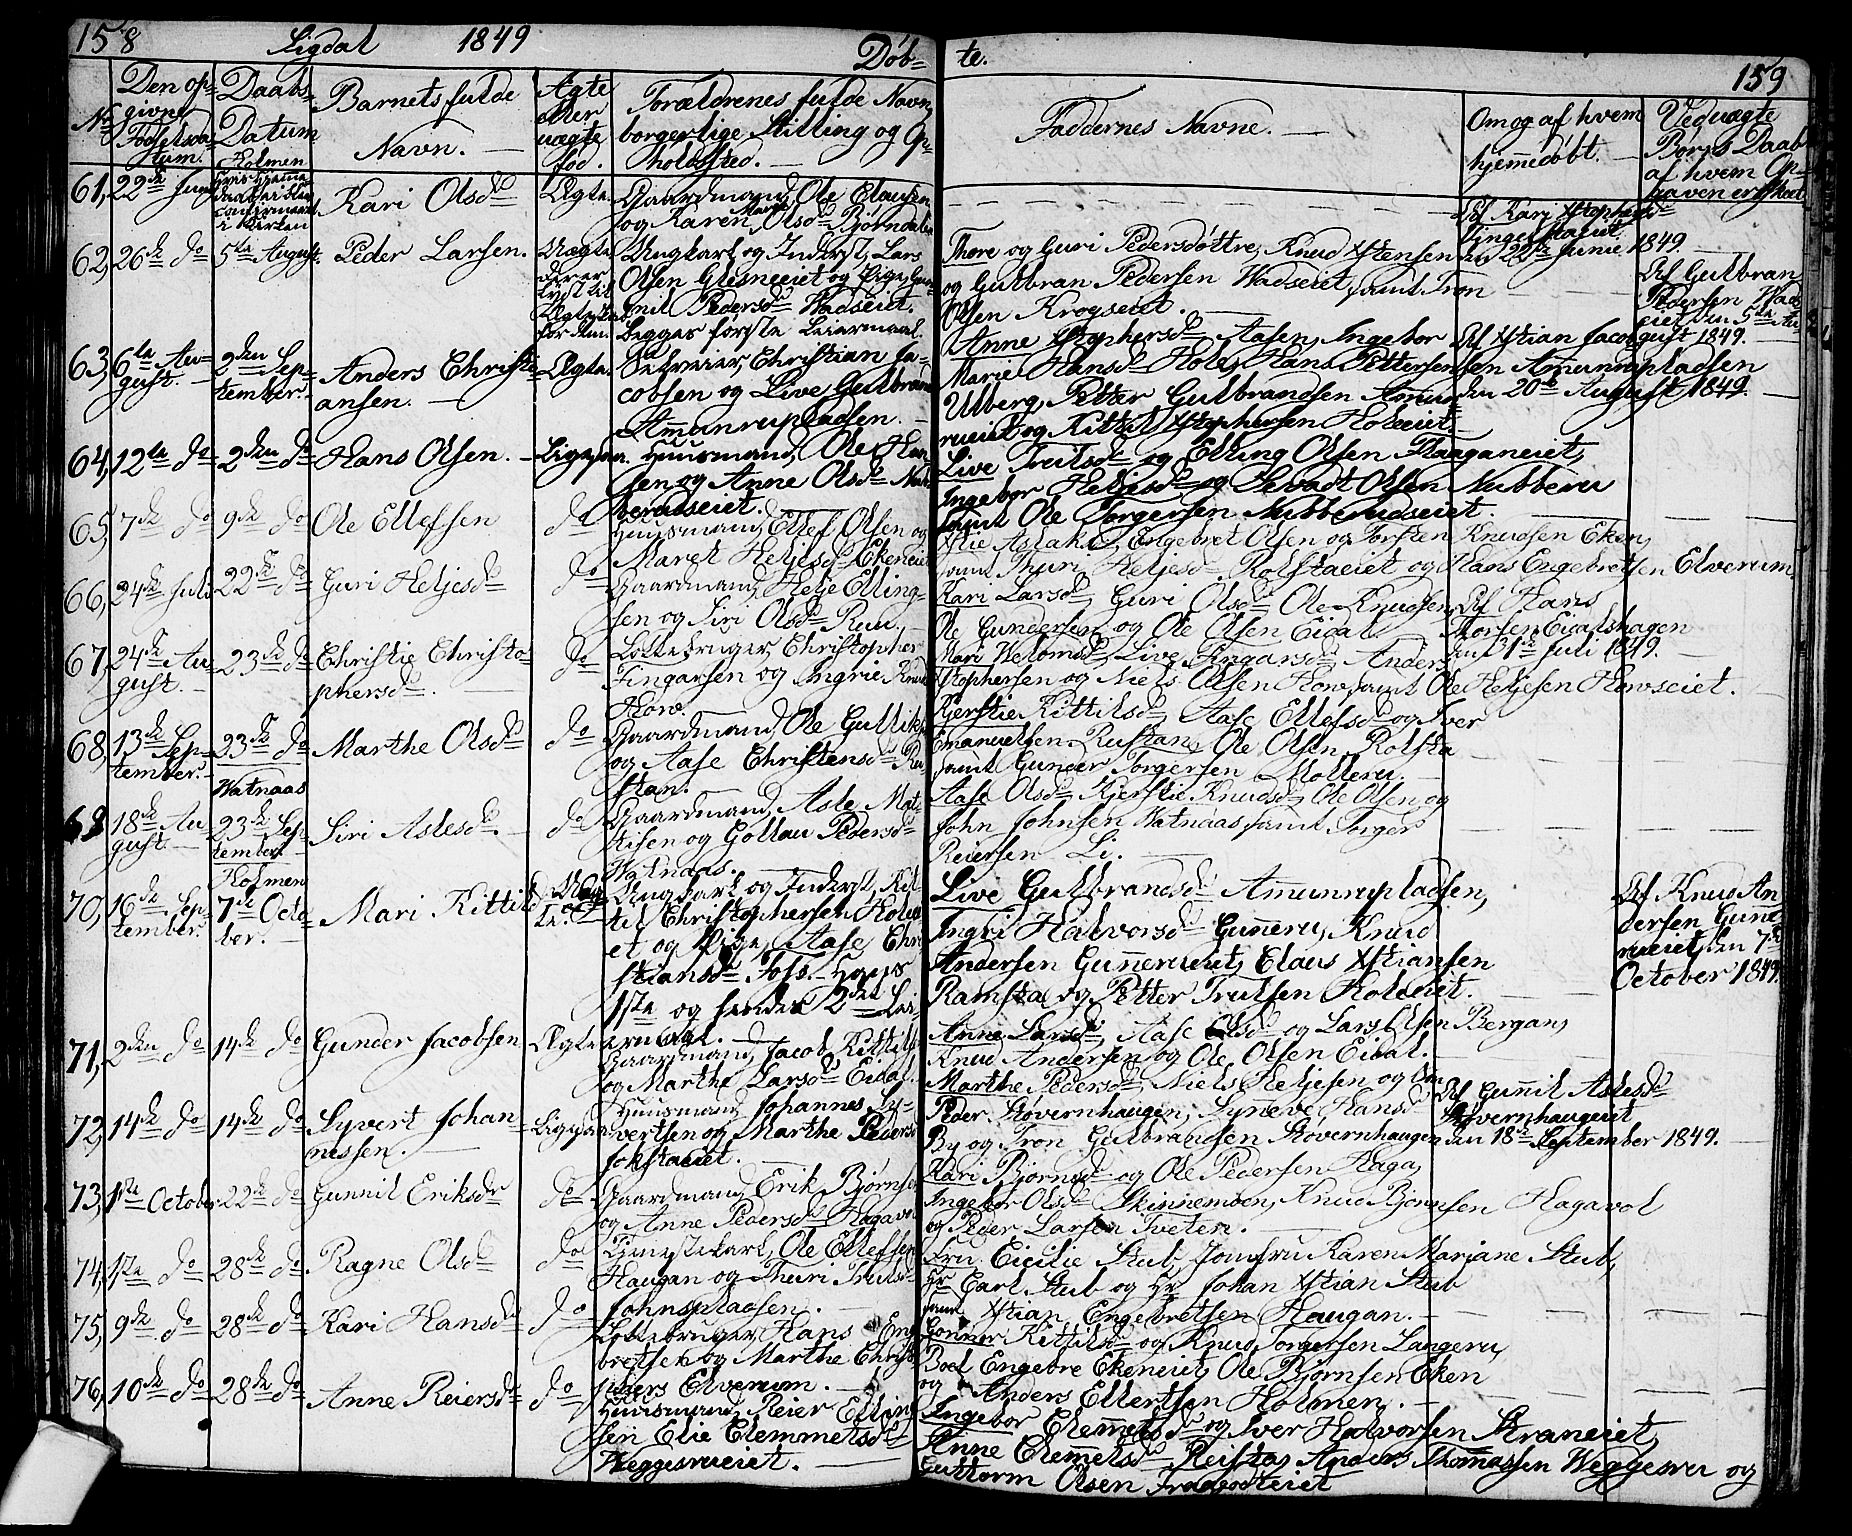 158 Sigdal 1849 Døb-
te. 159
No
Den op-
givne
Fødselsda-
tum.
Daabs-
Datum
Barnets fulde
Navn.
Ægte
eller
uægte
fød.
Forældrenes fulde Navn,
borgerlige Stilling og Op-
holdssted.
Faddernes Navne.
Om og af hvem
hjemmedøbt.
Ved uægte
Børns Daab
af hvem Op-
gaven er skeet
Holmen
61, 22de Juni
i Kirken
Kari Olsdr
Ægte.
Gaardmand, Ole Clausen
og Karen Marie Olsdr Bjørndalen
Af Kari Xstophersdr
den 22de Junie 1849
62, 26de do 5te August.
Peder Larsen.
Uægte
Ungkarl og Inderst, Lars
Olsen Glesneeiet og Pige, Gun-
nil Pedersdr Wadseiet.
Begges første Leiermaal.
Thore og Guri Pedersdøttre, Knud Xstensen
og Gulbran Pedersen Wadseiet, samt Tron
Olsen Krogseiet.
Af Gulbran
Pedersen Wads-
eiet, den 5te Au-
gust 1849.
63, 6te Au-
gust.
2den Sep-
tember.
Anders Christi-
ansen.
Ægte.
Selveier, Christian Ja-
cobsen og Live Gulbrands
Amunrupladsen.
Anne Xstophersdr Aasen, Ingebor
Marie Hansdr Hole, Hans Pettersen
Ulberg, Petter Gulbrandsen Amun-
rueiet og Kittil Xstophersen Holeeiet.
Af Xstian Jacob-
sen Amunrupladsen
den 20de August 1849.
64, 12te do 2den do
Hans Olsen.
Ligesaa.
Huusmand, Ole Han-
sen og Anne Olsdr Nub-
berudseiet.
Live Truilsdr og Elling Olsen Flaaganeiet,
Ingebor Heljesdr og Sevadt Olsen Nubberu
samt Ole Torgersen Nubberudseiet.
65, 7de do 9de do
Ole Ellefsen
do
Huusmand, Ellef Olsen og
Maret Heljesdr Ekeneiet
Aslaksdr, Engebret Olsen og Torsten Knudsen Eken,
samt Thuri Heljesdr Rolstaeiet og Hans Engebretsen Elverum.
66, 24de Juli 22de do
Guri Heljesdr
do
Gaardmand, Helje Elling-
sen og Siri Olsdr Ruu.
Kari Larsdr, Guri Olsdr, Ole Knudsen,
Ole Gundersen og Ole Olsen Eidal
Af Hans
Thorsen Eidalshagen
den 1ste Juli 1849.
67, 24de Au-
gust.
23de do
Christie Christo-
phersdr.
do
Lottebruger Christopher
Fingarsen og Ingrie Knuds
How.
Mari Welomsdr, Live Fingarsdr, Anders
Xstophersen og Niels Olsen How, samt Ole Heljesen Howseiet.
68, 13de Sep-
tember.
23de do
Marthe Olsdr
do
Gaardmand, Ole Gulliks
og Aase Christensdr Ru-
stan.
Kjerstie Kittilsdr, Aase Ellefsdr og Iver
Emanuelsen Rustan, Ole Olsen Rolsta
samt Gunder Torgersen Molleru.
Watnaas
69 18de Au-
gust
23de Sep-
tember
Siri Aslesdr.
do
Gaardmand, Asle Mat-
tisen og Gollau Pedersdr
Watnaas.
Aase Olsdr, Kjerstie Knudsdr, Ole Olsen og
John Johnsen Watnaas, samt Torger
Reiersen Li.
Holmen
70, 16de Sep-
tember.
7de Octo-
ber.
Mari Kittilsdr
Uæg-
te.
Ungkarl og Inderst, Kit-
til Christophersen Holeei-
et og Pige, Aase Chri-
stiansdr Foss. Hans
1ste og hendes 2det Lei-
ermaal.
Live Gulbrandsdr Amunrupladsen,
Ingri Halvorsdr Gunneru, Knud
Andersen Gunnerueiet, Claus Xstiansen
Ramsta og Petter Trulsen Holeeiet.
Af Knud An-
dersen Gunne-
rueiet, den 7de
October 1849.
71, 2den do 14de do
Gunder Jacobsen
Ægte
Gaardmand, Jacob Kittils
og Marthe Larsdr Eidal.
Anne Larsdr, Aase Olsdr og Lars Olsen Bergan,
Knud Andersen og Ole Olsen Eidal.
72, 14de do 14de do
Syvert Johan-
nessen.
Ligesaa
Huusmand Johannes Sy-
vertsen og Marthe Pedersdr
Jokstaeiet.
Marthe Pedersdr, Niels Heljesen og
Peder Støvernhaugen, Syneve Hansdr
By og Tron Gulbrandsen Støvernhaugen
Af Gunnil Aslesdr
Støvernhaugeiet
den 18de September 1849.
73, 1ste October 22de do
Gunnil Eriksdr
do
Gaardmand Erik Bjørnsen
og Anne Pedersdr Hagavol
Kari Bjørnsdr og Ole Pedersen Haga,
Ingebor Olsdr Skinnemoen, Knud Bjørnsen Hagavol
og Peder Larsen Tveten.
74, 1ste do 28de do
Ragne Olsdr
do
Tjenestekarl, Ole Ellefsen
Haugan og Thuri Trulsdr
Johnspladsen.
Fru Cicilie Stub, Jomfru Karen Marjane Stub,
Hr Carl Stub og Hr Johan Xstian Stub
samt Xstian Engebretsen Haugan.
75, 9de do 28de do
Kari Hansdr
do
Lottebruger, Hans Enge-
bretsen og Marthe Christ-
phers Elverum.
Gonner Kittilsdr og Knud Torgersen Langeru,
Boel Engebre Ekeneiet, Ole Bjørnsen Eken
og Anders Ellertsen Holmen.
76, 10de do 28de do
Anne Reiersdr
do
Huusmand, Reier Elling-
sen Elie Clemmetsdr
Weggesrueiet.
Ingebor Clemmetsdr og Iver Halvorsen Straneiet,
Anne Clemetsdr Reistad, Anders Thomassen Weggesru og
Guttorm Olsen Fragodteiet